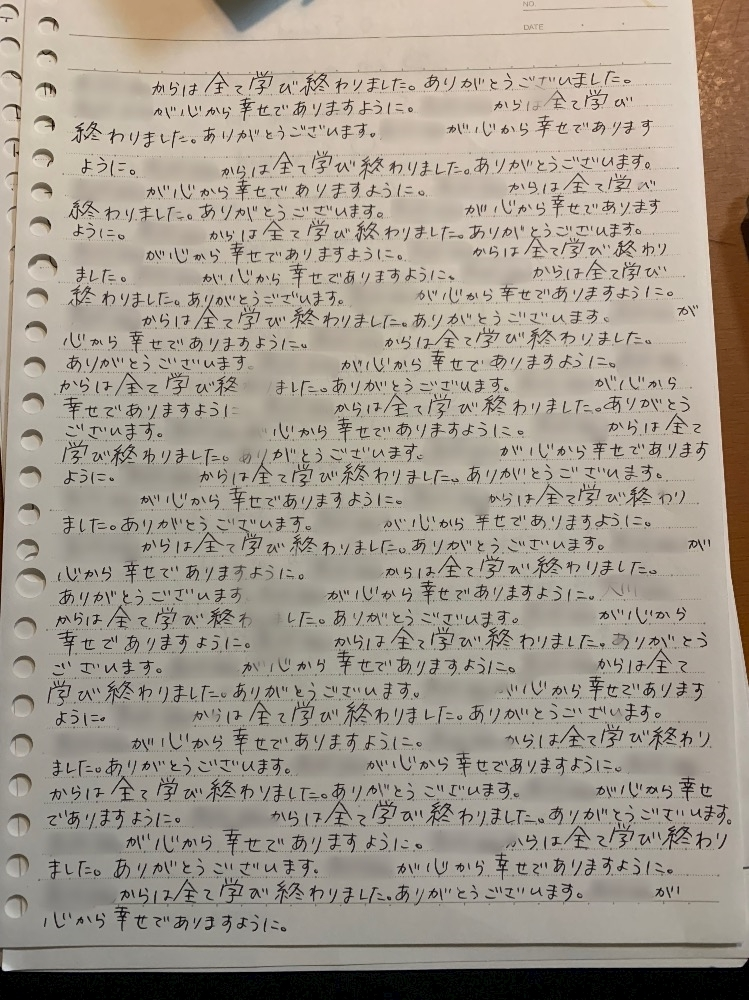 NO.
DATE
からは全て学び終わりました。ありがとうございました。
が心から幸せでありますように。 からは全て学び
終わりました。ありがとうございます。 が心から幸せであります
ように。 からは全て学び終わりました。ありがとうございます。
が心から幸せでありますように。 からは全て学び
終わりました。ありがとうございます。 が心から幸せであります
ように。 からは全て学び終わりました。ありがとうございます。
が心から幸せでありますように。 からは全て学び終わり
ました。 が心から幸せでありますように。 からは全て学び
終わりました。ありがとうございます。 が心から幸せでありますように。
からは全て学び終わりました。ありがとうございます。 が
心から幸せでありますように。 からは全て学び終わりました。
ありがとうございます。 が心から幸せでありますように。
からは全て学び終 ました。ありがとうございます。 が心から
幸せでありますように からは全て学び終わりました。ありがとう
ございます。 心から幸せでありますように。 からは全て
学び終わりました。ありがとうございます。 が心から幸せであります
ように。 からは全て学び終わりました。ありがとうございます。
が心から幸せでありますように。 からは全て学び終わり
ました。ありがとうございます。 が心から幸せでありますように。
からは全て学び終わりました。ありがとうございます。 が
心から幸せでありますように。 からは全て学び終わりました。
ありがとうございます が心から幸せでありますように。
からは全て学び終わ した。ありがとうございます。 が心から
幸せでありますように。 からは全て学び終わりました。ありがとう
ございます。 が心から幸せでありますように。 からは全て
学び終わりました。ありがとうございます。 が心から幸せであります
ように。 からは全て学び終わりました。ありがとうございます。
が心から幸せでありますように。 からは全て学び終わり
ました。ありがとうございます。 が心から幸せでありますように。
からは全て学び終わりました。ありがとうございます。 が心から幸せ
でありますように。 からは全て学び終わりました。ありがとうございます。
が心から幸せでありますように。 からは全て学び終わり
ました。ありがとうございます。 が心から幸せでありますように。
からは全て学び終わりました。ありがとうございます。 が
心から幸せでありますように。